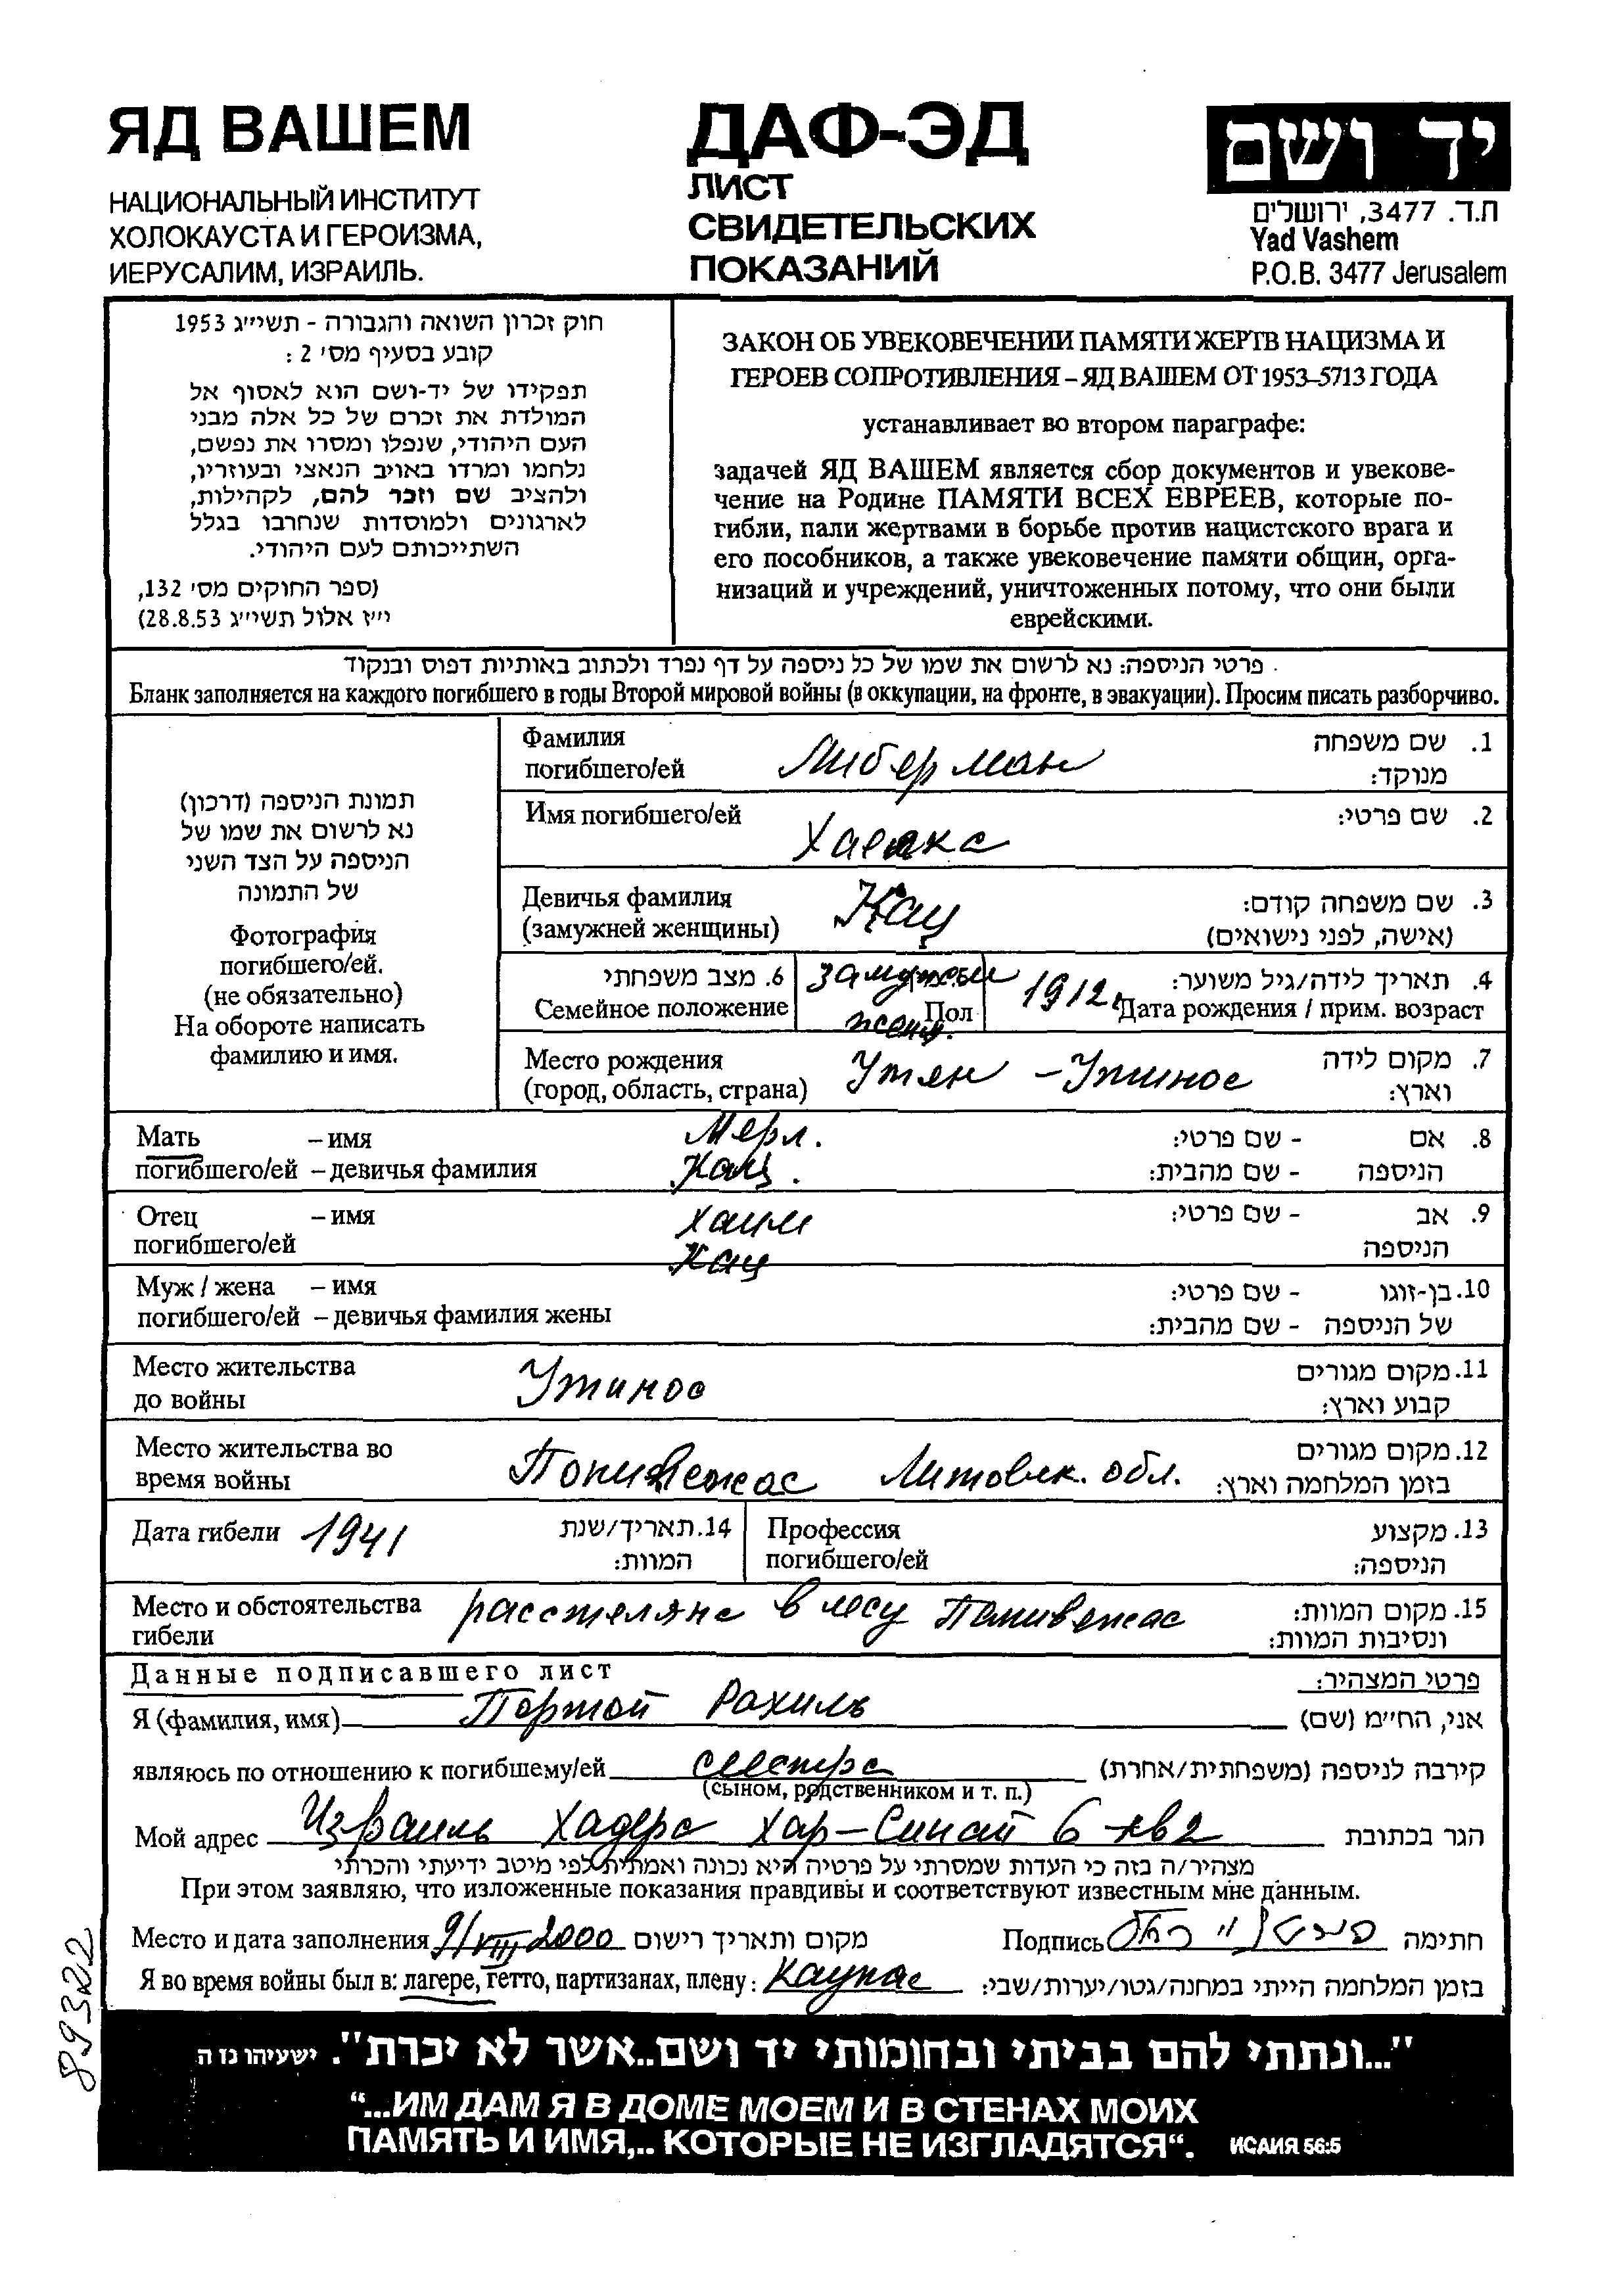 ЯД ВАШЕМ
НАЦИОНАЛЬНЫЙ ИНСТИТУТ
ХОЛОКАУСТА И ГЕРОИЗМА,
ИЕРУСАЛИМ, ИЗРАИЛЬ.
ДАФ-ЭД
ЛИСТ
СВИДЕТЕЛЬСКИХ
ПОКАЗАНИЙ
יד ושם
ת.ד. 3477, ירושלים
Yad Vashem
P.O.B. 3477 Jerusalem
חוק זכרון השואה והגבורה - תשי״ג 1953
קובע בסעיף מס׳ 2 :
תפקידו של יד-ושם הוא לאסוף אל
המולדת את זכרם של כל אלה מבני
העם היהודי, שנפלו ומסרו את נפשם,
נלחמו ומרדו באויב הנאצי ובעוזריו,
ולהציב שם וזכר להם, לקהילות,
לארגונים ולמוסדות שנחרבו בגלל
השתייכותם לעם היהודי.
(ספר החוקים מס׳ 132,
י״ז אלול תשי״ג 28.8.53)
ЗАКОН ОБ УВЕКОВЕЧЕНИИ ПАМЯТИ ЖЕРТВ НАЦИЗМА И
ГЕРОЕВ СОПРОТИВЛЕНИЯ – ЯД ВАШЕМ ОТ 1953–5713 ГОДА
устанавливает во втором параграфе:
задачей ЯД ВАШЕМ является сбор документов и увекове-
чение на Родине ПАМЯТИ ВСЕХ ЕВРЕЕВ, которые по-
гибли, пали жертвами в борьбе против нацистского врага и
его пособников, а также увековечение памяти общин, орга-
низаций и учреждений, уничтоженных потому, что они были
еврейскими.
פרטי הניספה: נא לרשום את שמו של כל ניספה על דף נפרד ולכתוב באותיות דפוס ובנקוד
Бланк заполняется на каждого погибшего в годы Второй мировой войны (в оккупации, на фронте, в эвакуации). Просим писать разборчиво.
תמונת הניספה (דרכון)
נא לרשום את שמו של
הניספה על הצד השני
של התמונה
Фотография
погибшего/ей.
(не обязательно)
На обороте написать
фамилию и имя.
Фамилия Либерман 1. שם משפחה
погибшего/ей מנוקד:
Имя погибшего/ей 2. שם פרטי:
Девичья фамилия Кац 3. שם משפחה קודם:
(замужней женщины) (אישה, לפני נישואים)
6. מצב משפחתי замужем 1912г. 4. תאריך לידה/גיל משוער:
Семейное положение женщ. Пол Дата рождения / прим. возраст
Место рождения Утян – Утинос 7. מקום לידה
(город, область, страна) וארץ:
Мать – имя Мерл. 8. אם - שם פרטי:
погибшего/ей – девичья фамилия Кац. הניספה - שם מהבית:
Отец – имя Хаим 9. אב - שם פרטי:
погибшего/ей Кац הניספה
Муж / жена – имя 10. בן-זוגו - שם פרטי:
погибшего/ей – девичья фамилия жены של הניספה - שם מהבית:
Место жительства Утинос 11. מקום מגורים
до войны קבוע וארץ:
Место жительства во Понивежас Литовск. обл. 12. מקום מגורים
время войны בזמן המלחמה וארץ:
Дата гибели 1941 14. תאריך/שנת Профессия 13. מקצוע
המוות: погибшего/ей הניספה:
Место и обстоятельства расстеляна в лесу Панивежас 15. מקום המוות:
гибели ונסיבות המוות:
Данные подписавшего лист פרטי המצהיר:
Я (фамилия, имя) Портой Рахиль אני, הח״מ (שם)
являюсь по отношению к погибшему/ей сестра קירבה לניספה (משפחתית/אחרת)
(сыном, родственником и т. п.)
Мой адрес Израиль Хадера Хар-Синай 6 кв 2 הגר בכתובת
מצהיר/ה בזה כי העדות שמסרתי על פרטיה היא נכונה ואמתית לפי מיטב ידיעתי והכרתי
При этом заявляю, что изложенные показания правдивы и соответствуют известным мне данным.
Место и дата заполнения 9/VIII 2000 מקום ותאריך רישום Подпись חתימה
Я во время войны был в: лагере, гетто, партизанах, плену: Каунас בזמן המלחמה הייתי במחנה/גטו/יערות/שבי:
89322
"...ונתתי להם בביתי ובחומותי יד ושם..אשר לא יכרת". ישעיהו נז ה
“...ИМ ДАМ Я В ДОМЕ МОЕМ И В СТЕНАХ МОИХ
ПАМЯТЬ И ИМЯ,.. КОТОРЫЕ НЕ ИЗГЛАДЯТСЯ“. ИСАИЯ 56:5